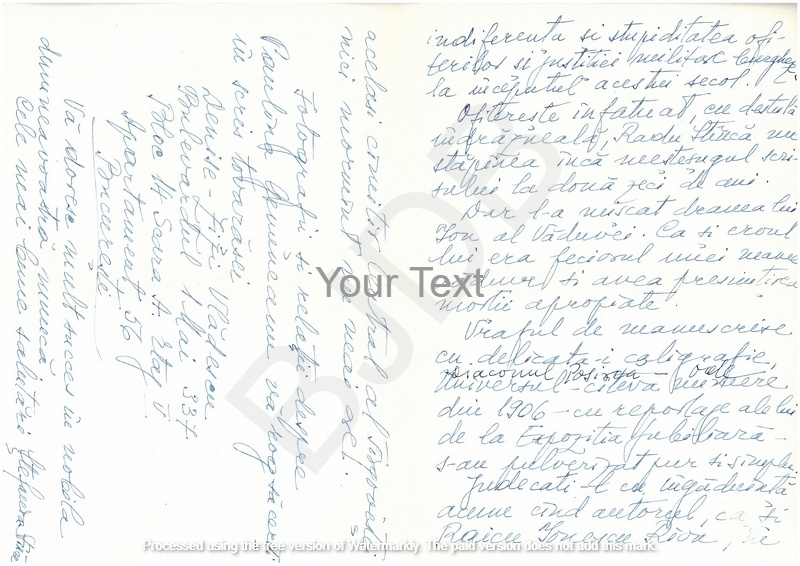 indiferența și stupiditatea ofi-
țerilor și justiției militare
la începutul acestui secol.
Ofițerește înfatuat, cu destulă
îndrăzneală, Radu Stîncă nu
stăpînea încă meșteșugul scri-
sului la două zeci de ani.
Dar l-a mișcat drama lui
Ion al Văduvei. Ca și eroul
lui era feciorul unei mame
și avea presimțirea
morții apropiate.
Vraful de manuscrise
cu delicata-i caligrafie,
Universul - cîteva numere
din 1906 - cu reportaje ale lui
de la Expoziția Jubiliară -
s-au pulverizat pur și simplu.
Judecați-l cu îngăduință
acum cînd autorul, ca și
Raicu Ionescu Rion,
același cimitir
nici mormînt nu mai are.
Fotografii și relații despre
vă rog să cereți
în scris tovarășei
Denise - Vlădescu
Bulevardul 1 Mai 337
Bloc 14 Scara A. Etaj V
Apartament 56
București
Vă doresc mult succes în nobila
dumneavoastră muncă
Cele mai bune salutări
Your Text
BJDB
Processed using the free version of Watermarkly. The paid version does not add this mark.